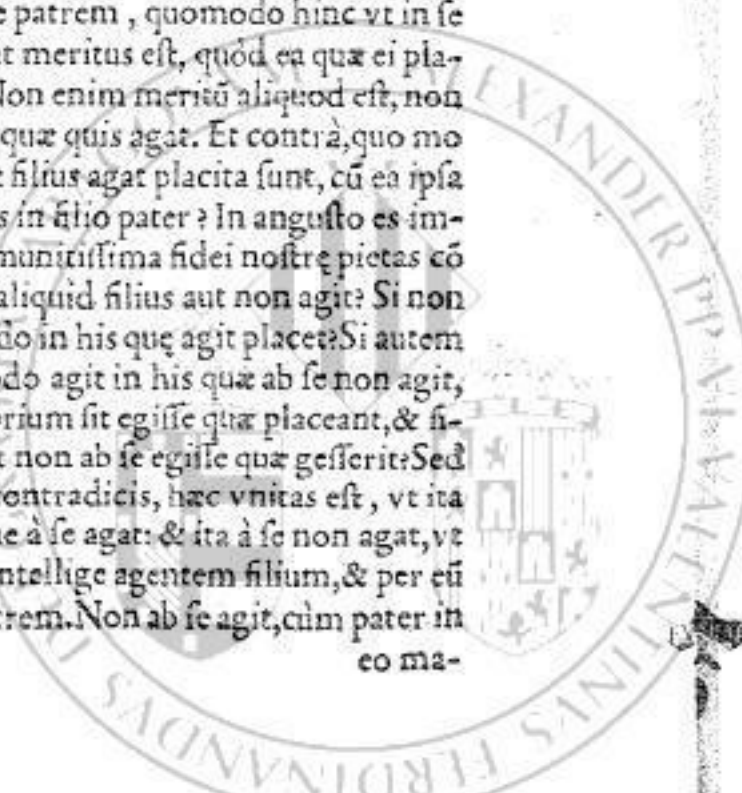 e patrem , quomodo hinc vt in ſe
t meritus eſt, quòd ea quæ ei pla-
Non enim meritũ aliquod eſt, non
quæ quis agat. Et contrà,quo mo
filius agat placita ſunt, cũ ea ipſa
s in filio pater ? In anguſto es im-
munitiſſima fidei noſtrę pietas cõ
aliquid filius aut non agit? Si non
do in his quę agit placet?Si autem
do agit in his quæ ab ſe non agit,
rium ſit egiſſe quæ placeant,& fi-
t non ab ſe egiſſe quæ geſſerit?Sed
contradicis, hæc vnitas eſt , vt ita
ue à ſe agat: & ita à ſe non agat,vt
ntellige agentem filium,& per eũ
trem.Non ab ſe agit,cùm pater in
eo ma-
ALEXANDER PP VI VALENTINVS FERDINANDVS